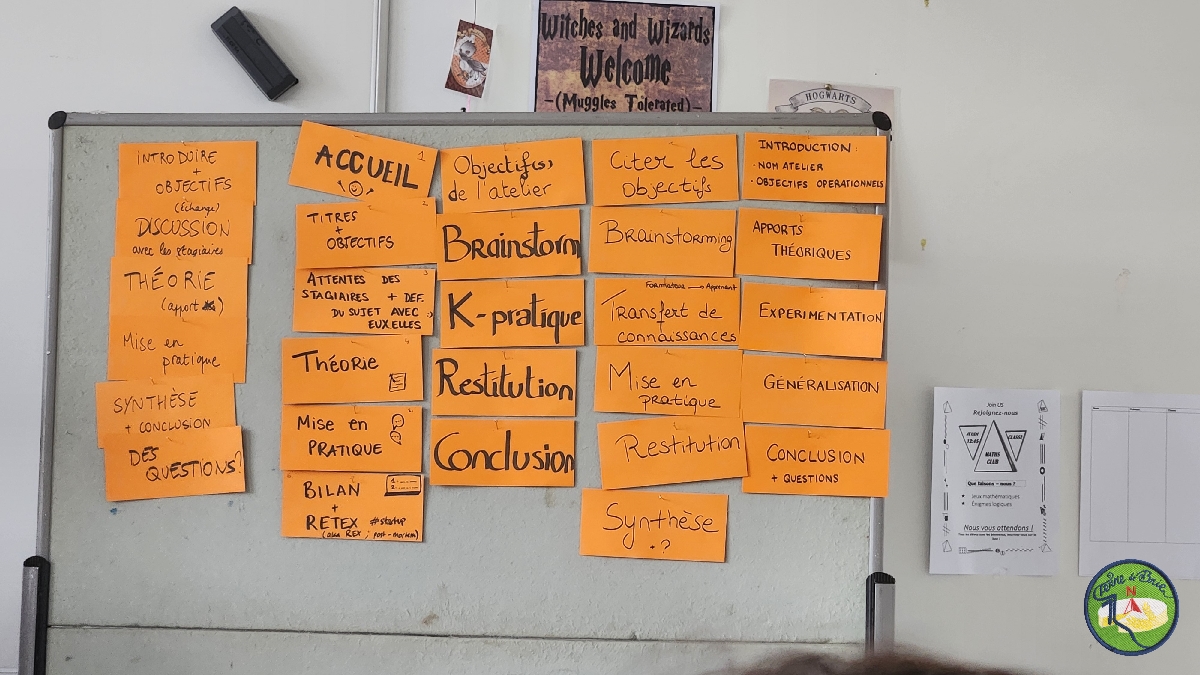 Witches and Wizards
Welcome
-(Muggles Tolerated)-
HOGWARTS
INTRODUIRE
+
OBJECTIFS
(Échange)
DISCUSSION
avec les stagiaires
THÉORIE
(apport)
Mise en
pratique
SYNTHÈSE
+ CONCLUSION
DES
QUESTIONS?
ACCUEIL
1
TITRES
2
+
OBJECTIFS
ATTENTES DES
3
STAGIAIRES + DEF.
DU SUJET AVEC
EUX.ELLES
Théorie
4
Mise en
PRATIQUE
BILAN
+
RETEX #startup
(aka REX ; post-mortem)
Objectif(s)
de l'atelier
Brainstorm
K-pratique
Restitution
Conclusion
Citer les
Objectifs
Brainstorming
Formateur → Apprenant
Transfert de
connaissances
Mise en
pratique
Restitution
Synthèse
+ ?
INTRODUCTION :
- NOM ATELIER
- OBJECTIFS OPERATIONNELS
APPORTS
THÉORIQUES
EXPERIMENTATION
GÉNÉRALISATION
CONCLUSION
+ QUESTIONS
Join US
Rejoignez-nous
MATHS
CLUB
Que faisons - nous ?
Jeux mathématiques
Énigmes logiques
Nous vous attendons !
N